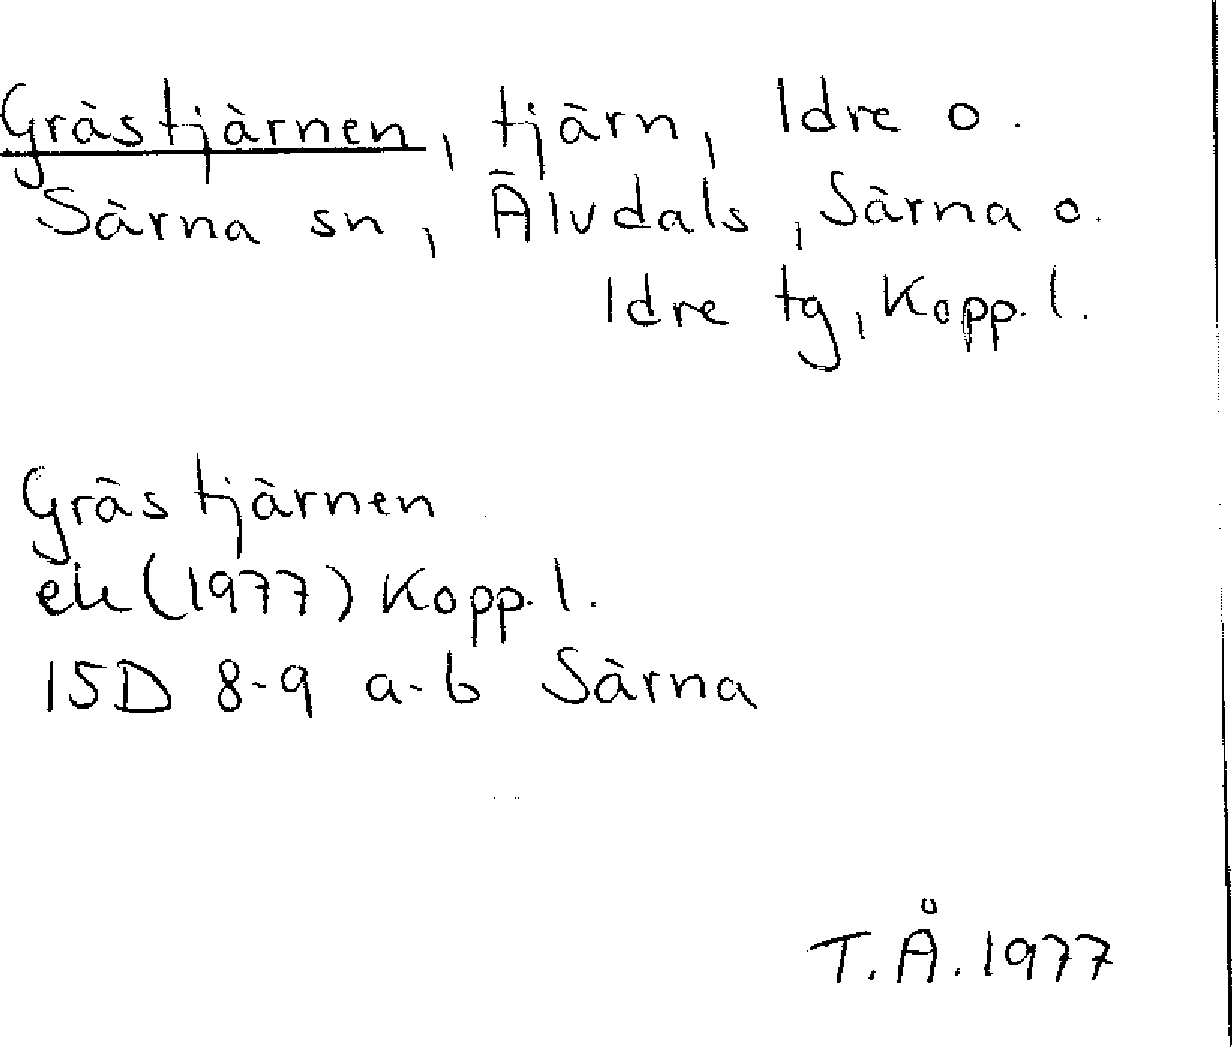 Grästjärnen, tjärn, Idre o.
Särna sn, Älvdals, Särna o.
Idre tg, Kopp. l.
Grästjärnen
ek (1977) Kopp. l.
15D 8-9 a-b Särna
T.Å. 1977